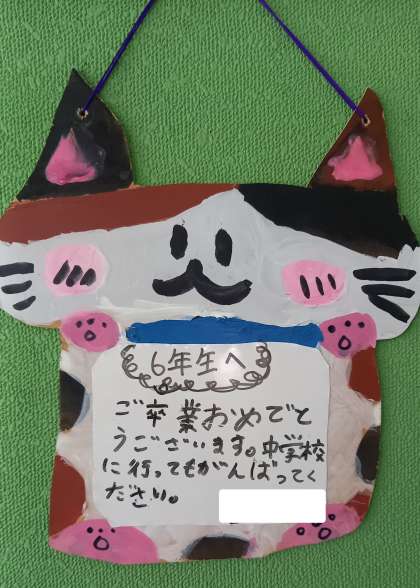 6年生へ
ご卒業おめでと
うございます。中学校
に行ってもがんばってく
ださい。